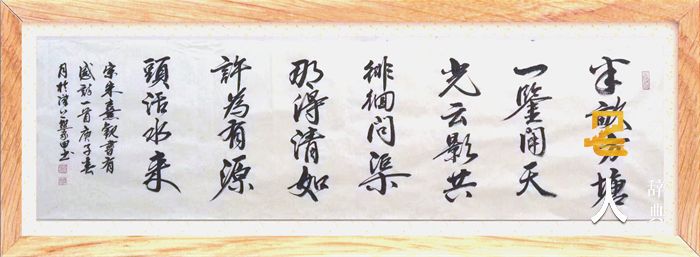 半畝方塘
一鑒開天
光云影共
徘徊问渠
那得清如
許為有源
頭活水来
宋朱熹观書有
感詩一首庚子春
月於
人
辞典